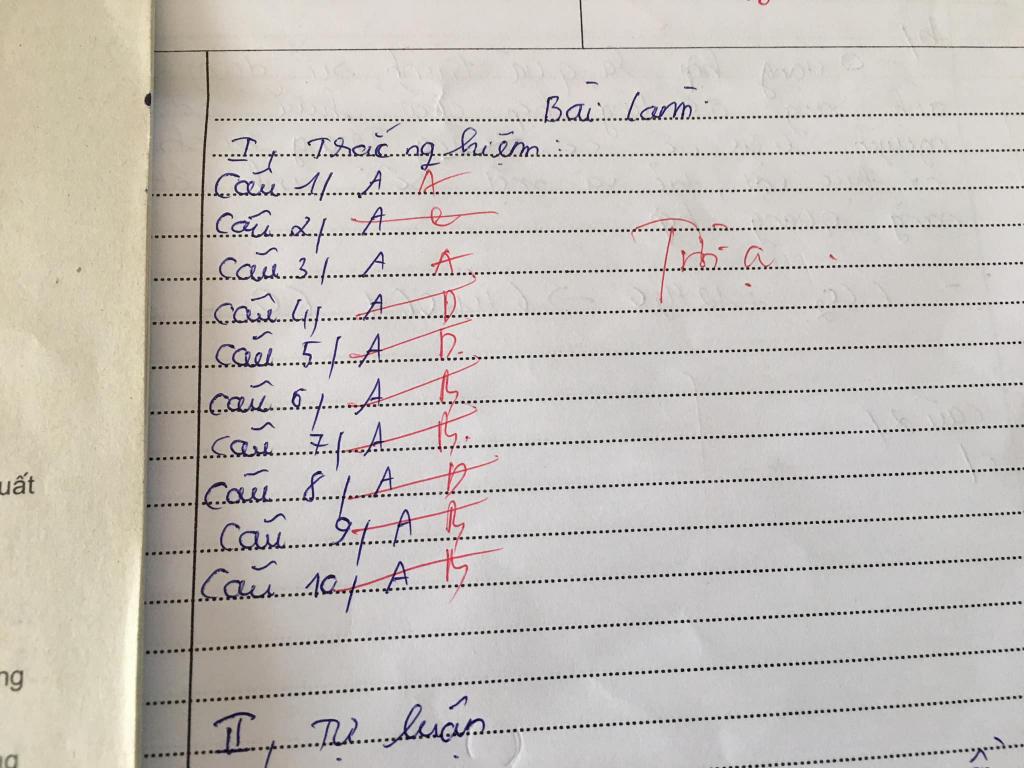 Bài làm
I, Trắc nghiệm:
Câu 1/ A A
Câu 2/ A C
Câu 3/ A A
Câu 4/ A D
Câu 5/ A D
Câu 6/ A B
Câu 7/ A B
Câu 8/ A D
Câu 9/ A B
Câu 10/ A B
II, Tự luận
uất
ng
ng